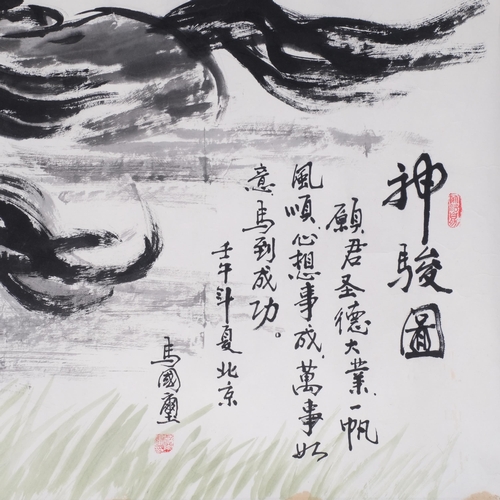 神駿圖
願君圣德大業一帆
風順心想事成，萬事如
意馬到成功。
壬午年夏北京
馬國璽